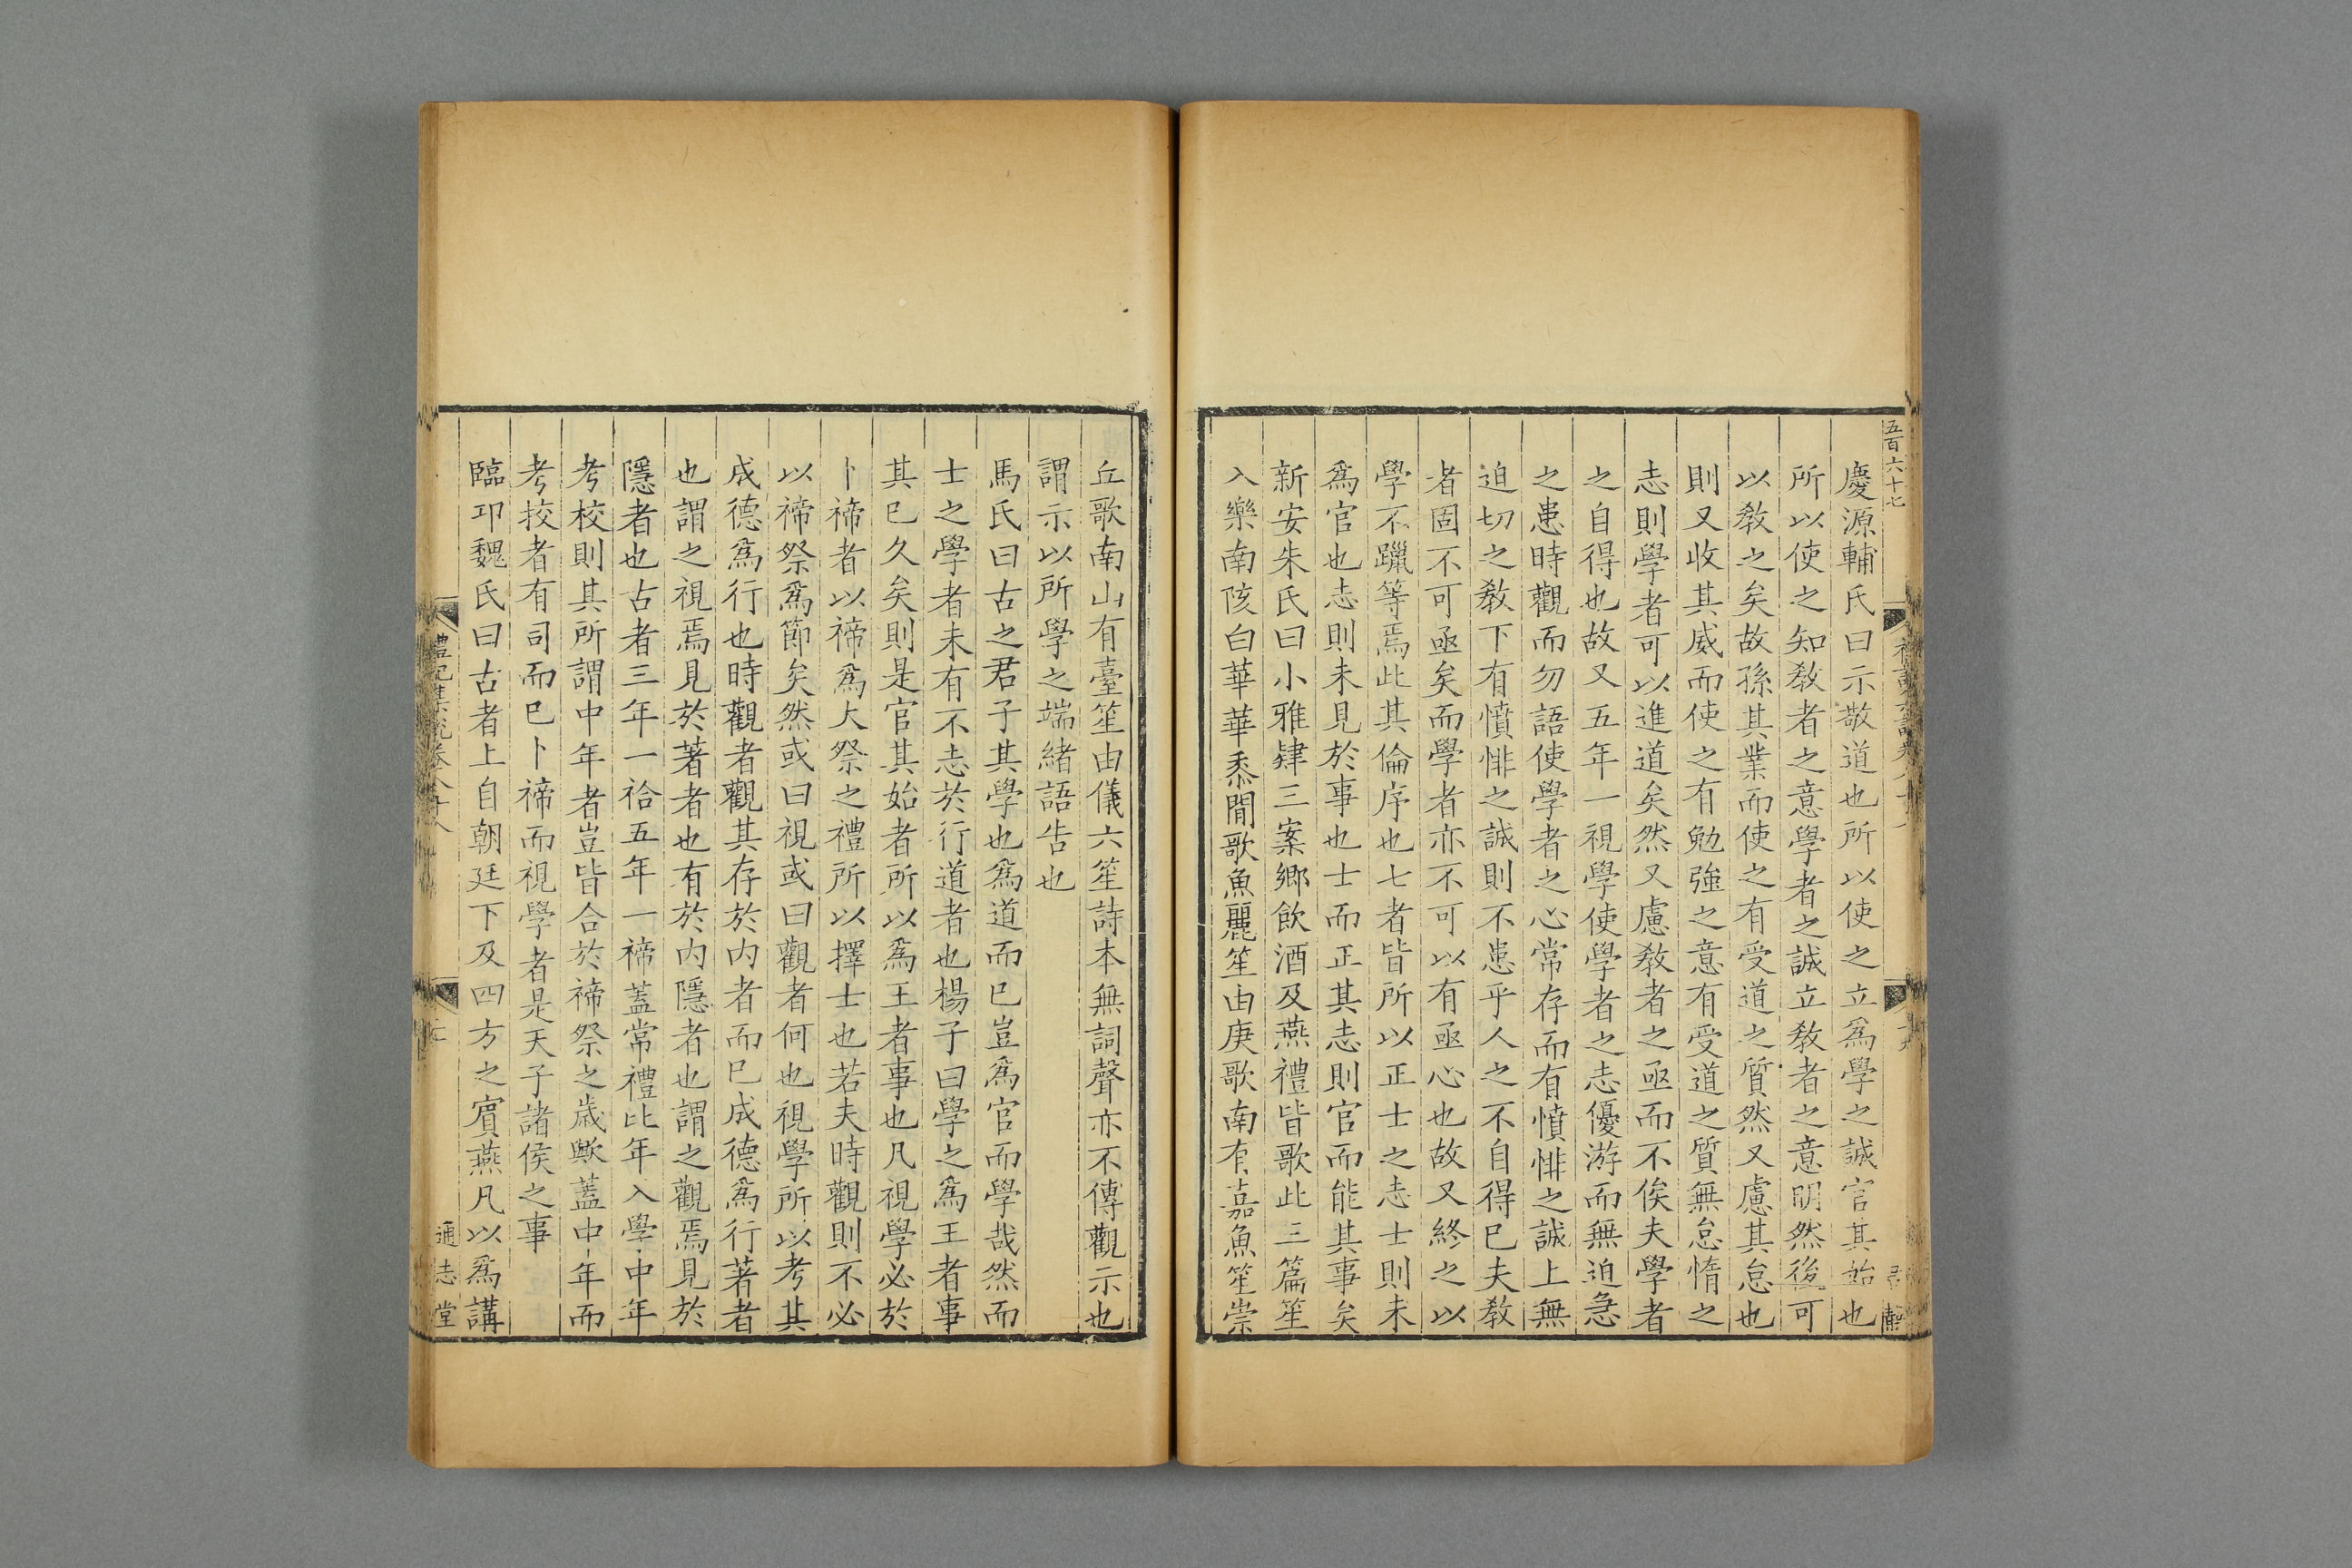 五百六十七
慶源輔氏曰示敬道也所以使之立爲學之誠官其始也
所以使之知敎者之意學者之誠立敎者之意明然後可
以敎之矣故孫其業而使之有受道之質然又慮其怠也
則又收其威而使之有勉強之意有受道之質無怠惰之
志則學者可以進道矣然又慮敎者之亟而不俟夫學者
之自得也故又五年一視學使學者之志優游而無迫急
之患時觀而勿語使學者之心常存而有憤悱之誠上無
迫切之敎下有憤悱之誠則不患乎人之不自得巳夫敎
者固不可亟矣而學者亦不可以有亟心也故又終之以
學不躐等焉此其倫序也七者皆所以正士之志士則未
爲官也志則未見於事也士而正其志則官而能其事矣
新安朱氏曰小雅肄三案鄉飲酒及燕禮皆歌此三篇笙
入樂南陔白華華黍閒歌魚麗笙由庚歌南有嘉魚笙崇
丘歌南山有臺笙由儀六笙詩本無詞聲亦不傳觀示也
謂示以所學之端緒語告也
馬氏曰古之君子其學也爲道而巳豈爲官而學哉然而
士之學者未有不志於行道者也楊子曰學之爲王者事
其巳久矣則是官其始者所以爲王者事也凡視學必於
卜禘者以禘爲大祭之禮所以擇士也若夫時觀則不必
以禘祭爲節矣然或曰視或曰觀者何也視學所以考其
成德爲行也時觀者觀其存於内者而巳成德爲行著者
也謂之視焉見於著者也有於内隱者也謂之觀焉見於
隱者也古者三年一祫五年一禘蓋常禮比年入學中年
考校則其所謂中年者豈皆合於禘祭之歲歟蓋中年而
考挍者有司而巳卜禘而視學者是天子諸侯之事
臨卭魏氏曰古者上自朝廷下及四方之賓燕凡以爲講
禮記集說卷八十八
通志堂